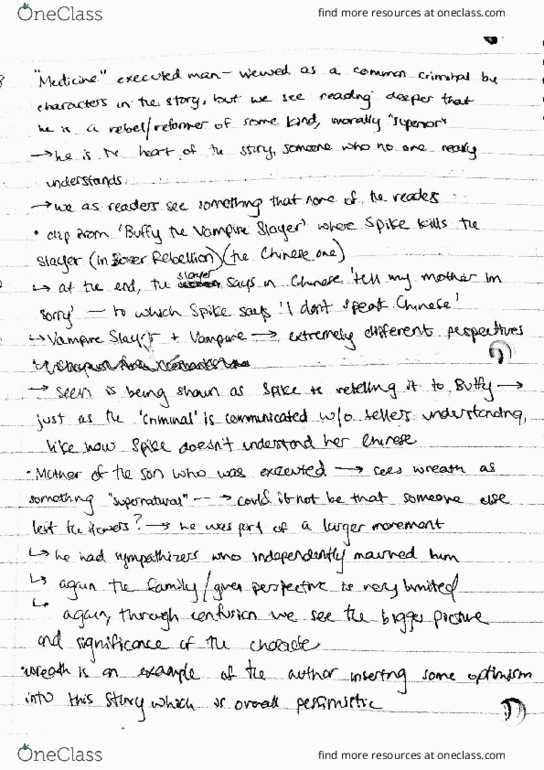 OneClass
find more resources at oneclass.com
"Medicine" executed man - viewed as a common criminal by
characters in the story, but we see reading deeper that
he is a rebel/reformer of some kind, morally "superior"
→ he is the heart of the story, someone who no one really
understands.
→ we as readers see something that none of the reades
• clip from 'Buffy the Vampire Slayer' where Spike kills the
slayer (in Boxer Rebellion) (the Chinese one)
↳ at the end, the slayer says in Chinese 'tell my mother Im
sorry' — to which Spike says 'I don't speak Chinese'
↳ Vampire Slayer + Vampire → extremely different perspectives
→ seen is being shown as Spike is retelling it to Buffy →
just as the 'criminal' is communicated w/o tellers understanding,
like how Spike doesn't understand her Chinese
• Mother of the son who was executed → sees wreath as
something "supernatural" → could it not be that someone else
left the flowers? → he was part of a larger movement
↳ he had sympathizers who independently mourned him
↳ again the family/given perspective is very limited
↳ again, through confusion we see the bigger picture
and significance of the
• wreath is an example of the author inserting some optimism
into this story which is overall pessimistic
OneClass
find more resources at oneclass.com